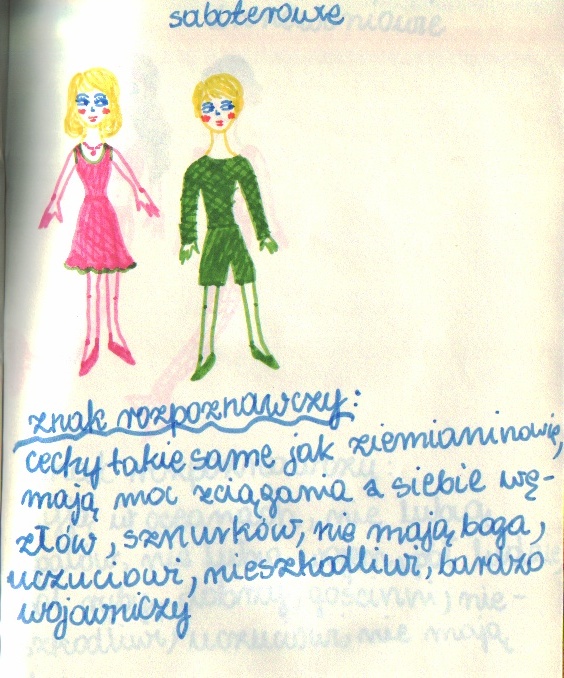 saboterowie
znak rozpoznawczy:
cechy takie same jak ziemianinowie,
mają moc zciągania z siebie wę-
złów, sznurków, nie mają boga,
uczuciowi, nieszkodliwi, bardzo
wojowniczy